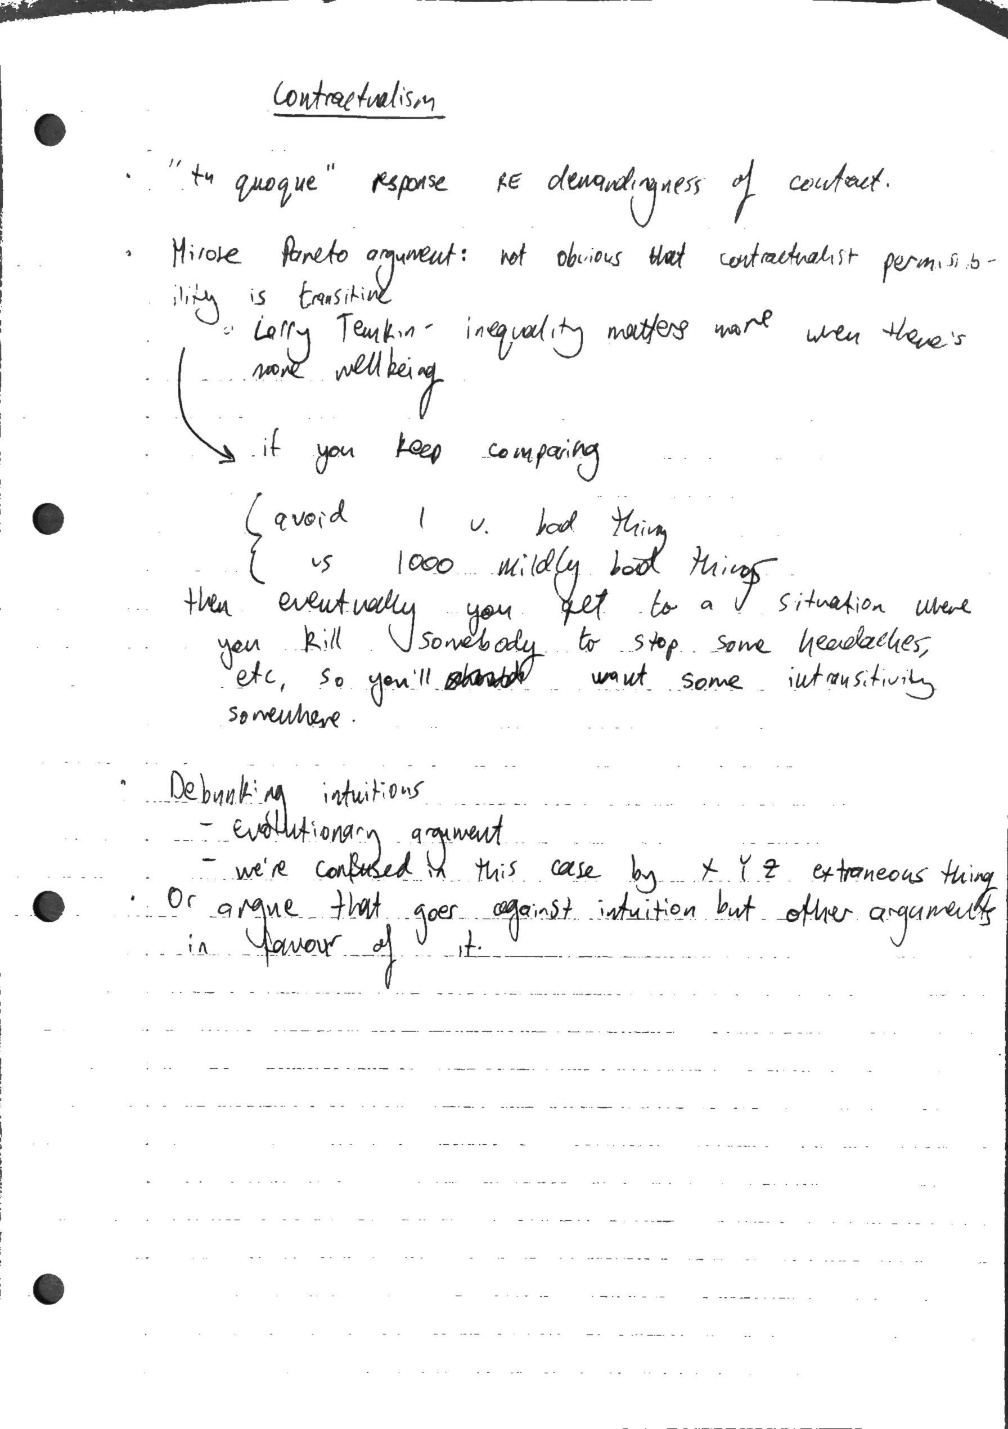 Contractualism
· "tu quoque" response RE demandingness of contract.
· Hirose Pareto argument: not obvious that contractualist permissib-
ility is transitive
Larry Temkin - inequality matters more when there's
more wellbeing
if you keep comparing
avoid 1 v. bad thing
vs 1000 mildly bad things
then eventually you get to a situation where
you kill somebody to stop some headaches,
etc, so you'll want some intransitivity
somewhere.
· Debunking intuitions
- evolutionary argument
- we're confused in this case by X Y Z extraneous thing
· Or argue that goes against intuition but other arguments
in favour of it.